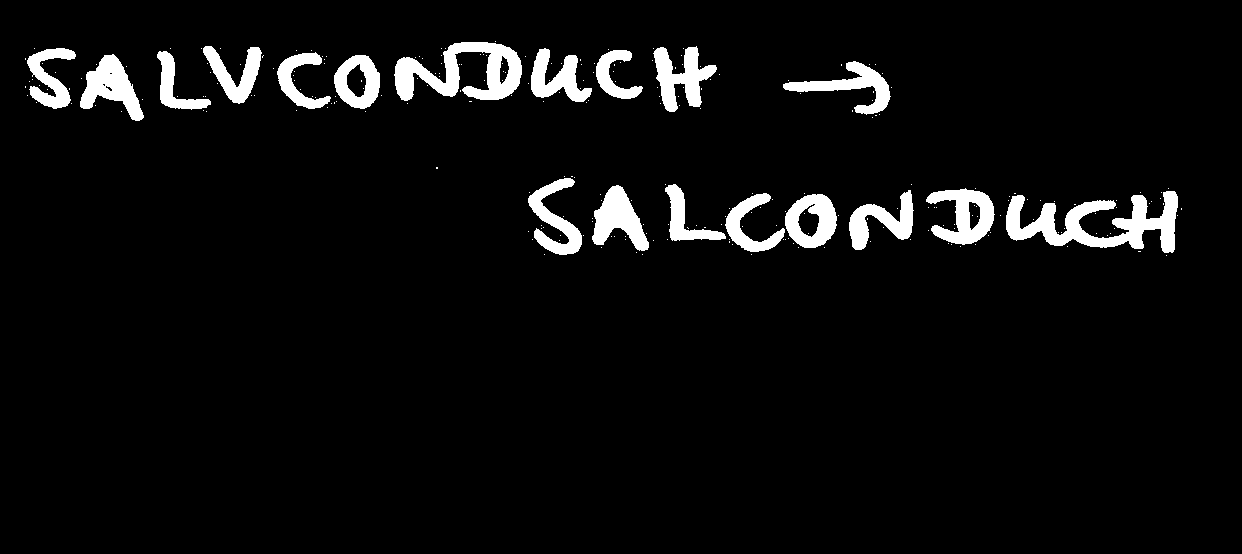 SALVCONDUCH →
SALCONDUCH